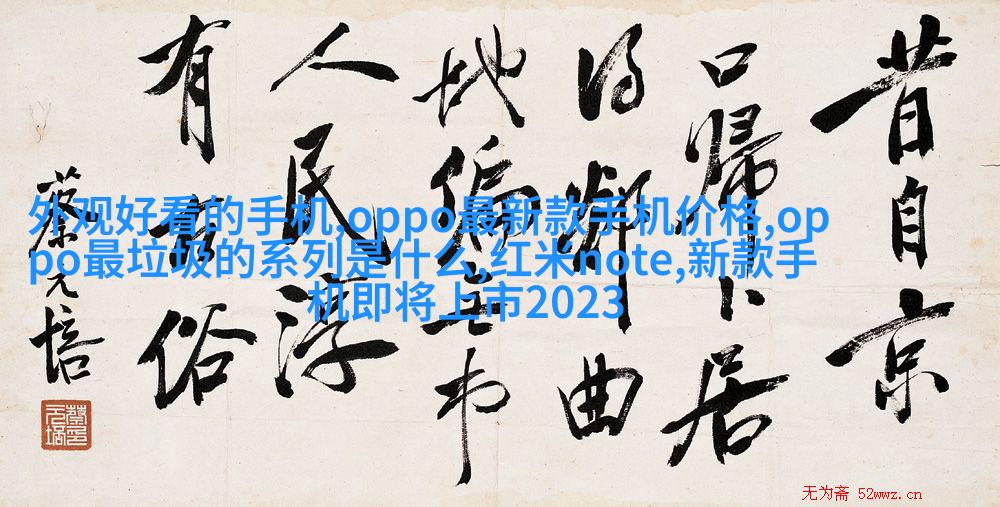 昔自京
口歸卜居
得鄰曲
地偏無市
人民淳
有古俗
蔡元培
外观好看的手机,oppo最新款手机价格,op
po最垃圾的系列是什么,红米note,新款手
机即将上市2023
无为斋 52wwz.cn